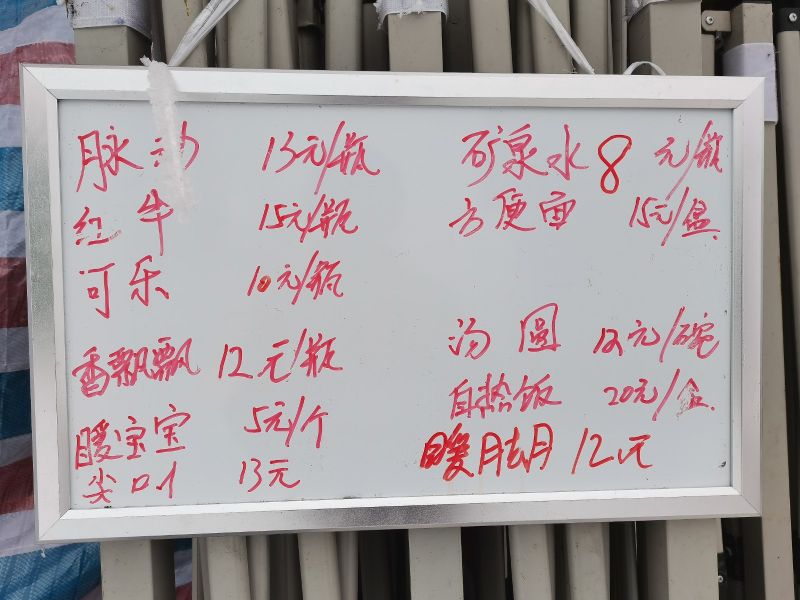 脉动 13元/瓶
红牛 15元/瓶
可乐 10元/瓶
香飘飘 12元/瓶
暖宝宝 5元/个
尖叫 13元
矿泉水 8元/瓶
方便面 15元/盒
汤圆 12元/碗
自热饭 20元/盒
12元